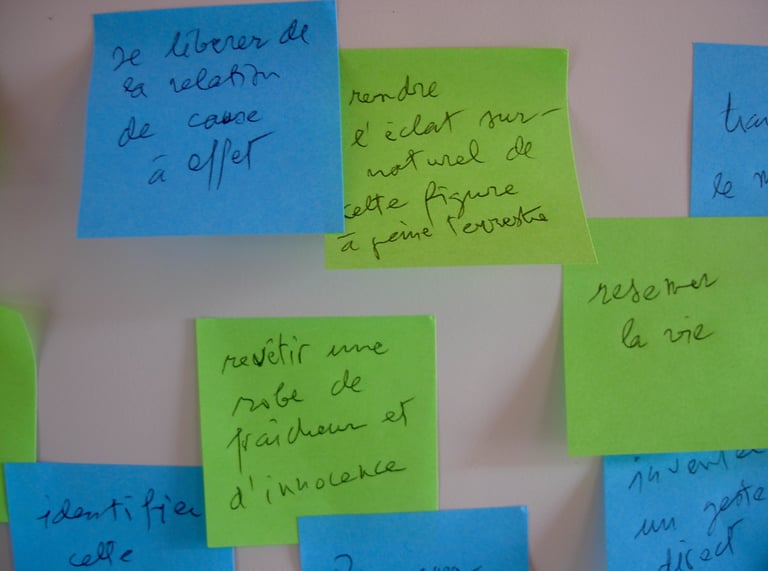 se libérer de
la relation
de cause
à effet
rendre
l'éclat sur-
naturel de
cette figure
à peine terrestre
le
revêtir une
robe de
fraîcheur et
d'innocence
la vie
identifier
cette
inventer
un geste
direct